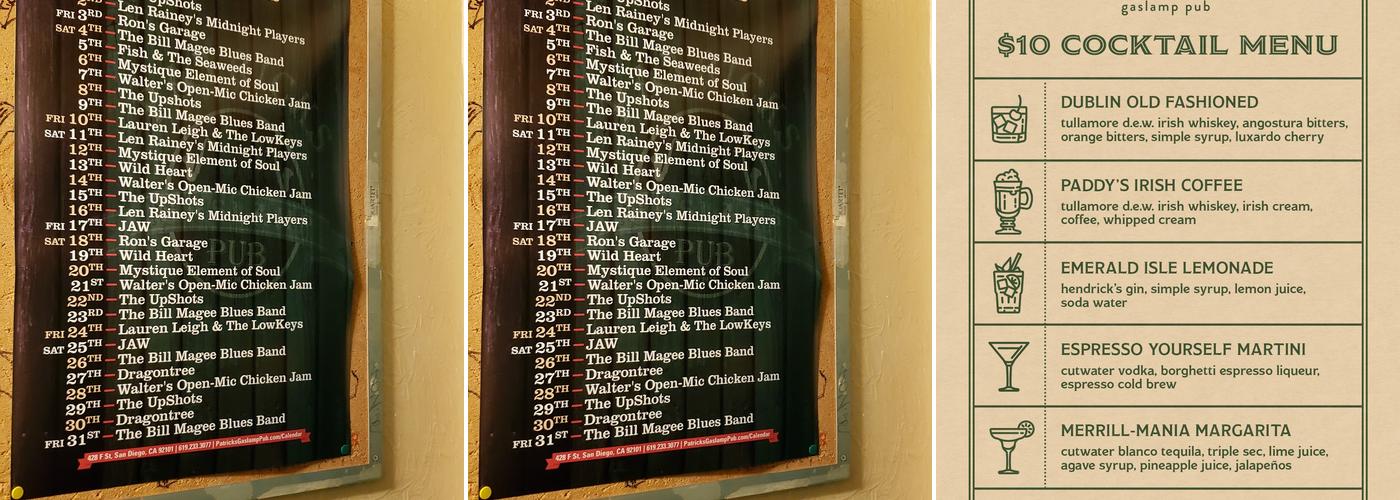 UpShots
2ND — Len Rainey's Midnight Players
FRI 3RD — Ron's Garage
SAT 4TH — The Bill Magee Blues Band
5TH — Fish & The Seaweeds
6TH — Mystique Element of Soul
7TH — Walter's Open-Mic Chicken Jam
8TH — The Upshots
9TH — The Bill Magee Blues Band
FRI 10TH — Lauren Leigh & The LowKeys
SAT 11TH — Len Rainey's Midnight Players
12TH — Mystique Element of Soul
13TH — Wild Heart
14TH — Walter's Open-Mic Chicken Jam
15TH — The UpShots
16TH — Len Rainey's Midnight Players
FRI 17TH — JAW
SAT 18TH — Ron's Garage
19TH — Wild Heart
20TH — Mystique Element of Soul
21ST — Walter's Open-Mic Chicken Jam
22ND — The UpShots
23RD — The Bill Magee Blues Band
FRI 24TH — Lauren Leigh & The LowKeys
SAT 25TH — JAW
26TH — The Bill Magee Blues Band
27TH — Dragontree
28TH — Walter's Open-Mic Chicken Jam
29TH — The UpShots
30TH — Dragontree
FRI 31ST — The Bill Magee Blues Band
428 F St, San Diego, CA 92101 | 619.233.3077 | PatricksGaslampPub.com/Calendar
PUB
UpShots
2ND — Len Rainey's Midnight Players
FRI 3RD — Ron's Garage
SAT 4TH — The Bill Magee Blues Band
5TH — Fish & The Seaweeds
6TH — Mystique Element of Soul
7TH — Walter's Open-Mic Chicken Jam
8TH — The Upshots
9TH — The Bill Magee Blues Band
FRI 10TH — Lauren Leigh & The LowKeys
SAT 11TH — Len Rainey's Midnight Players
12TH — Mystique Element of Soul
13TH — Wild Heart
14TH — Walter's Open-Mic Chicken Jam
15TH — The UpShots
16TH — Len Rainey's Midnight Players
FRI 17TH — JAW
SAT 18TH — Ron's Garage
19TH — Wild Heart
20TH — Mystique Element of Soul
21ST — Walter's Open-Mic Chicken Jam
22ND — The UpShots
23RD — The Bill Magee Blues Band
FRI 24TH — Lauren Leigh & The LowKeys
SAT 25TH — JAW
26TH — The Bill Magee Blues Band
27TH — Dragontree
28TH — Walter's Open-Mic Chicken Jam
29TH — The UpShots
30TH — Dragontree
FRI 31ST — The Bill Magee Blues Band
428 F St, San Diego, CA 92101 | 619.233.3077 | PatricksGaslampPub.com/Calendar
PUB
gaslamp pub
$10 COCKTAIL MENU
DUBLIN OLD FASHIONED
tullamore d.e.w. irish whiskey, angostura bitters,
orange bitters, simple syrup, luxardo cherry
PADDY'S IRISH COFFEE
tullamore d.e.w. irish whiskey, irish cream,
coffee, whipped cream
EMERALD ISLE LEMONADE
hendrick's gin, simple syrup, lemon juice,
soda water
ESPRESSO YOURSELF MARTINI
cutwater vodka, borghetti espresso liqueur,
espresso cold brew
MERRILL-MANIA MARGARITA
cutwater blanco tequila, triple sec, lime juice,
agave syrup, pineapple juice, jalapeños